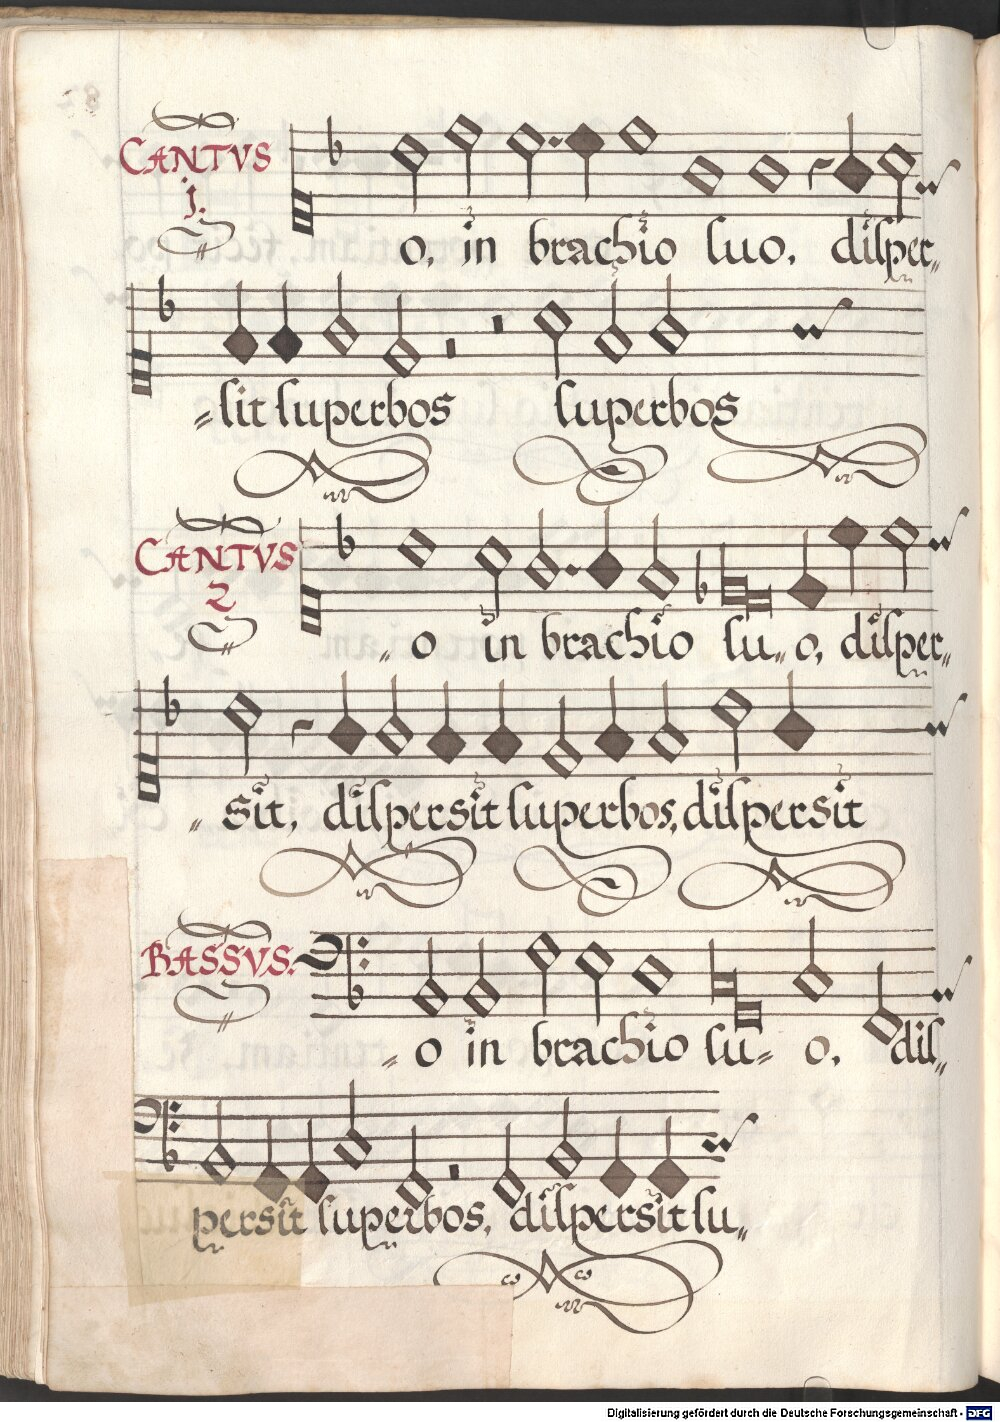 CANTVS
j.
o, in brachio suo, disper„
„sit superbos superbos
CANTVS
2
„ o in brachio su„ o, disper„
„ sit, dispersit superbos, dispersit
BASSVS.
„ o in brachio su„ o, dis„
persit superbos, dispersit su„
Digitalisierung gefördert durch die Deutsche Forschungsgemeinschaft - DFG